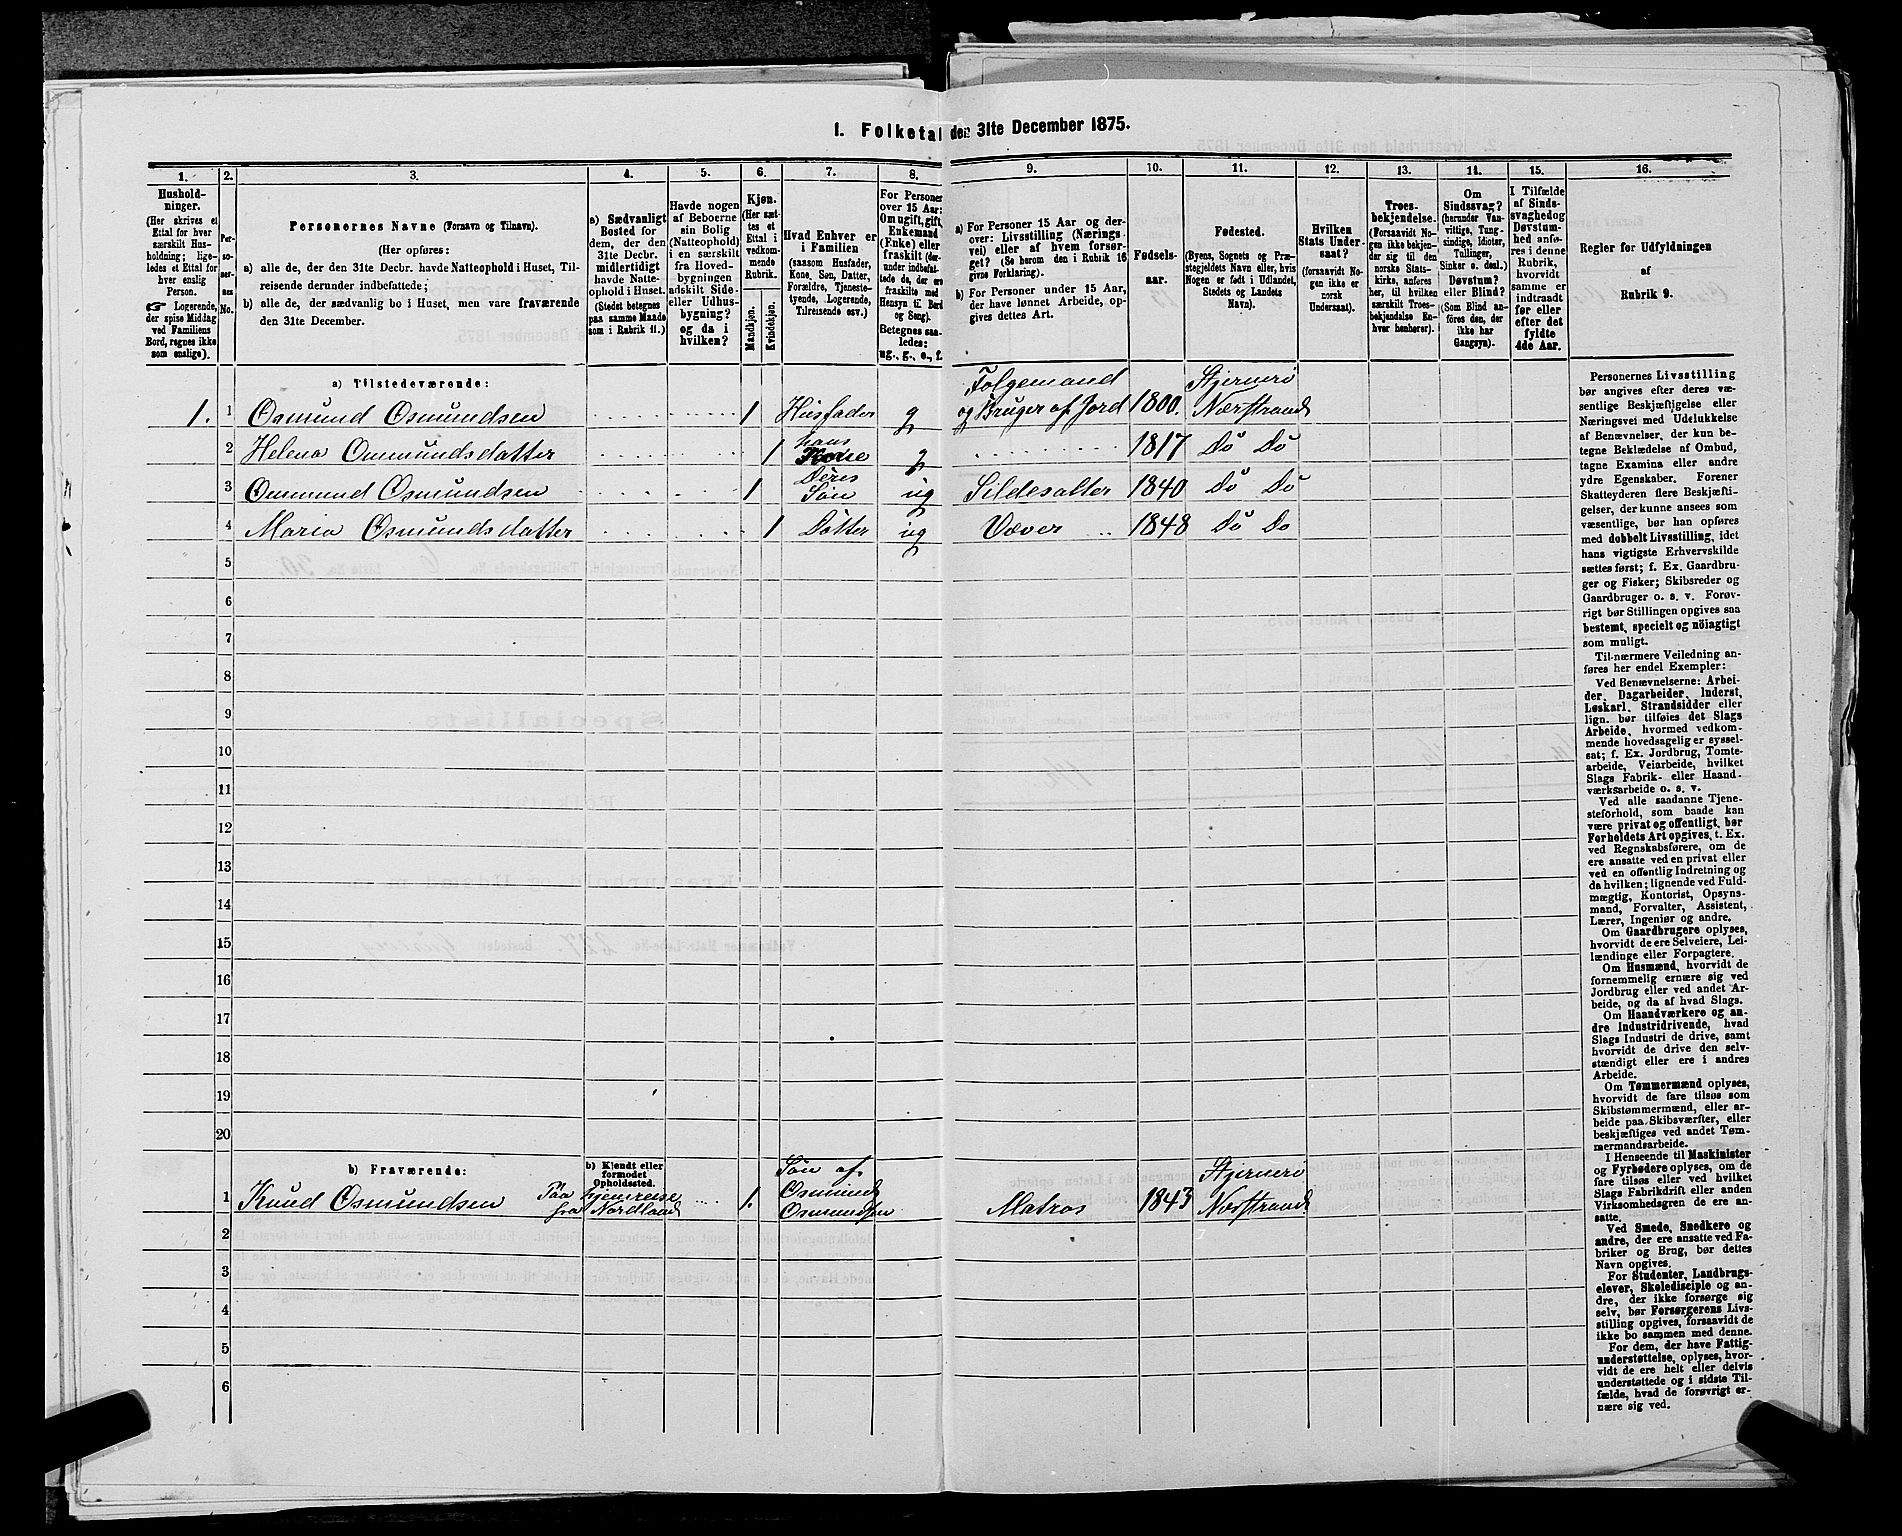 1. Folketal den 31te December 1875.
1.
Hushold-
ninger.
(Her skrives et
Ettal for hver
særskilt Hus-
holdning; lige-
ledes et Ettal for
hver enslig
Person.
☞ Logerende,
der spise Middag
ved Familiens
Bord, regnes ikke
som enslige).
2.
Per-
soner-
nes
No.
3.
Personernes Navne (Fornavn og Tilnavn).
(Her opføres:
a) alle de, der den 31te Decbr. havde Natteophold i Huset, Til-
reisende derunder indbefattede;
b) alle de, der sædvanlig bo i Huset, men vare fraværende
den 31te December.
4.
a) Sædvanligt
Bosted for
dem, der den
31te Decbr.
midlertidigt
havde Natte-
ophold i Huset.
(Stedet betegnes
paa samme Maade
som i Rubrik 11.)
5.
Havde nogen
af Beboerne
sin Bolig
(Natteophold)
i en særskilt
fra Hoved-
bygningen
adskilt Side-
eller Udhus-
bygning?
og da i
hvilken?
6.
Kjøn.
(Her sæt-
tes et
Ettal i
vedkom-
mende
Rubrik.
Mandkjøn.
Kvindekjøn.
7.
Hvad Enhver er
i Familien
(saasom Husfader,
Kone, Søn, Datter,
Forældre, Tjeneste-
tyende, Logerende,
Tilreisende osv.)
8.
For Personer
over 15 Aar:
Om ugift, gift,
Enkemand
(Enke) eller
fraskilt (der-
under indbefat-
tede de, der ere
fraskilte med
Hensyn til Bord
og Seng).
Betegnes saa-
ledes:
ug., g., e., f.
9.
a) For Personer 15 Aar og der-
over: Livsstilling (Nærings-
vei) eller af hvem forsør-
get? (Se herom den i Rubrik 16
givne Forklaring).
b) For Personer under 15 Aar,
der have lønnet Arbeide, op-
gives dettes Art.
10.
Fødsels-
aar.
11.
Fødested.
(Byens, Sognets og Præ-
stegjeldets Navn eller, hvis
Nogen er født i Udlandet,
Stedets og Landets
Navn).
12.
Hvilken
Stats Under-
saat?
(forsaavidt No-
gen ikke er
norsk
Undersaat).
13.
Troes-
bekjendelse.
(Forsaavidt No-
gen ikke bekjen-
der sig til den
norske Stats-
kirke, anføres
her, til hvilken
særskilt Troes-
bekjendelse En-
hver henhører).
14.
Om
Sindssvag?
(herunder Van-
vittige, Tung-
sindige, Idioter,
Tullinger,
Sinker o. desl.)
Døvstum?
eller Blind?
(Som Blind an-
føres den, der
ikke har
Gangsyn).
15.
I Tilfælde
af Sinds-
svaghed og
Døvstum-
hed anfø-
res i denne
Rubrik,
hvorvidt
samme er
indtraadt
før eller
efter det
fyldte
4de Aar.
16.
Regler for Udfyldningen
af
Rubrik 9.
a) Tilstedeværende:
1. 1 Osmund Osmundsen 1 Husfader g Folgemand og Bruger af Jord 1800. Stjernerö Nærstrand
2 Helena Ommundsdatter 1 hans Kone g 1817 Do Do
3 Ommund Osmundsen 1 Deres Søn ug Sildesalter 1840 Do Do
4 Maria Osmundsdatter 1 Datter ug Væver 1848 Do Do
5
6
7
8
9
10
11
12
13
14
15
16
17
18
19
20
b) Fraværende:
b) Kjendt eller
formodet
Opholdssted.
1 Knud Osmundsen Paa hjemreise fra Nordland 1. Søn af Osmund Osmundsen Matros 1843 Stjernerö Nærstrand
2
3
4
5
6
Personernes Livsstilling
bør angives efter deres væ-
sentlige Beskjæftigelse eller
Næringsvei med Udelukkelse
af Benævnelser, der kun be-
tegne Beklædelse af Ombud,
tagne Examina eller andre
ydre Egenskaber. Forener
Skatteyderen flere Beskjæfti-
gelser, der kunne ansees som
væsentlige, bør han opføres
med dobbelt Livsstilling, idet
hans vigtigste Erhvervskilde
sættes først; f. Ex. Gaardbru-
ger og Fisker; Skibsreder og
Gaardbruger o. s. v. Forøv-
rigt bør Stillingen opgives saa
bestemt, specielt og nöiagtigt
som muligt.
Til nærmere Veiledning an-
føres her endel Exempler:
Ved Benævnelserne: Arbei-
der, Dagarbeider, Inderst,
Løskarl, Strandsidder eller
lign. bør tilføies det Slags
Arbeide, hvormed vedkom-
mende hovedsagelig er syssel-
sat; f. Ex. Jordbrug, Tomte-
arbeide, Veiarbeide, hvilket
Slags Fabrik- eller Haand-
værksarbeide o. s. v.
Ved alle saadanne Tjene-
steforhold, som baade kan
være privat og offentligt, bør
Forholdets Art opgives, t. Ex.
ved Regnskabsførere, om de
ere ansatte ved en privat eller
ved en offentlig Indretning og
da hvilken; lignende ved Fuld-
mægtig, Kontorist, Opsyns-
mand, Forvalter, Assistent,
Lærer, Ingeniør og andre.
Om Gaardbrugere oplyses,
hvorvidt de ere Selveiere, Lei-
lændinge eller Forpagtere.
Om Husmænd, hvorvidt de
fornemmelig ernære sig ved
Jordbrug eller ved andet Ar-
beide, og da af hvad Slags.
Om Haandværkere og an-
dre Industridrivende, hvad
Slags Industri de drive, samt
hvorvidt de drive den selv-
stændigt eller ere i andres
Arbeide.
Om Tømmermænd oplyses,
hvorvidt de fare tilsøs som
Skibstømmermænd, eller ar-
beide paa Skibsværfter, eller
beskjæftiges ved andet Tøm-
mermandsarbeide.
I Henseende til Maskinister
og Fyrbødere oplyses, om de
fare tilsøs eller ved hvilket
Slags Fabrikdrift eller anden
Virksomhedsgren de ere an-
satte.
Ved Smede, Snedkere og
andre, der ere ansatte ved Fa-
briker og Brug, bør dettes
Navn opgives.
For Studenter, Landbrugs-
elever, Skoledisciple og an-
dre, der ikke forsørge sig
selv, bør Forsørgerens Livs-
stilling opgives, forsaavidt de
ikke bo sammen med denne.
For dem, der have Fattig-
understøttelse, oplyses, hvor-
vidt de ere helt eller delvis
understøttede og i sidste Til-
fælde, hvad de forøvrigt er-
nære sig ved.